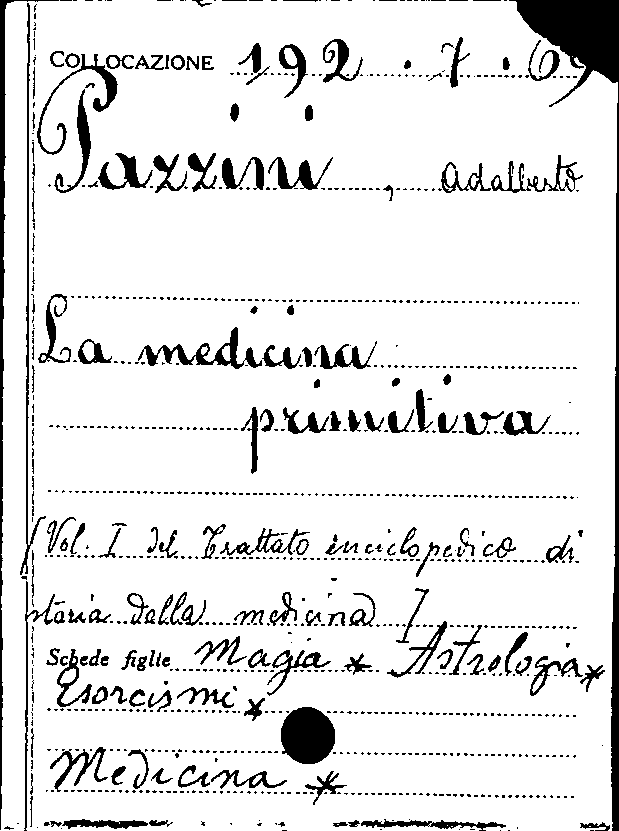 COLLOCAZIONE 192 . 7 . 69
Pazzini, Adalberto
La medicina
primitiva
[Vol. I del Trattato enciclopedico di
storia della medicina]
Schede figlie Magia * Astrologia *
Esorcismi *
Medicina *